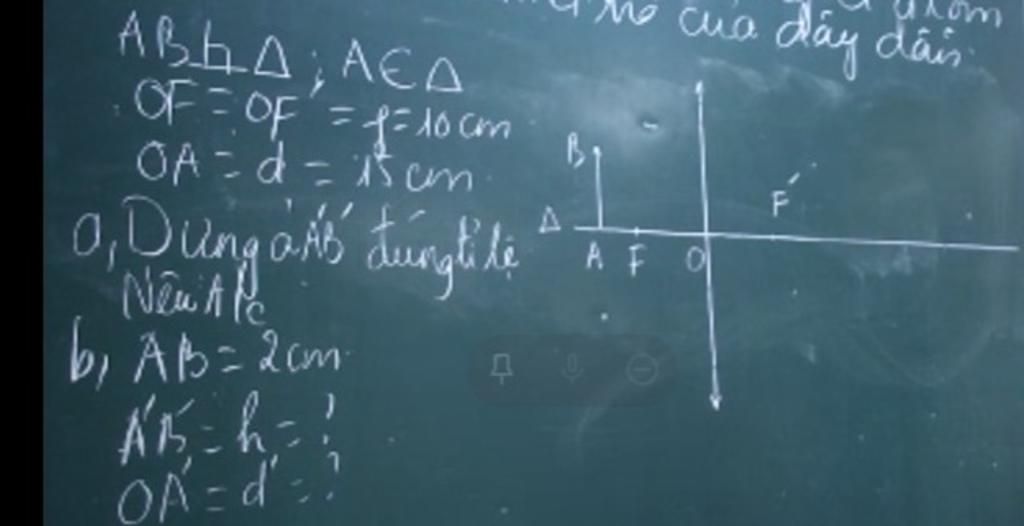 của dây dẫn
AB ⊥ Δ ; A ∈ Δ
OF = OF' = f = 10 cm
OA = d = 15 cm
a, Dựng ả A'B' đúng tỉ lệ
Nêu t/c
b, AB = 2 cm
A'B' = h' = ?
OA' = d' = ?
B
F'
Δ
A F O